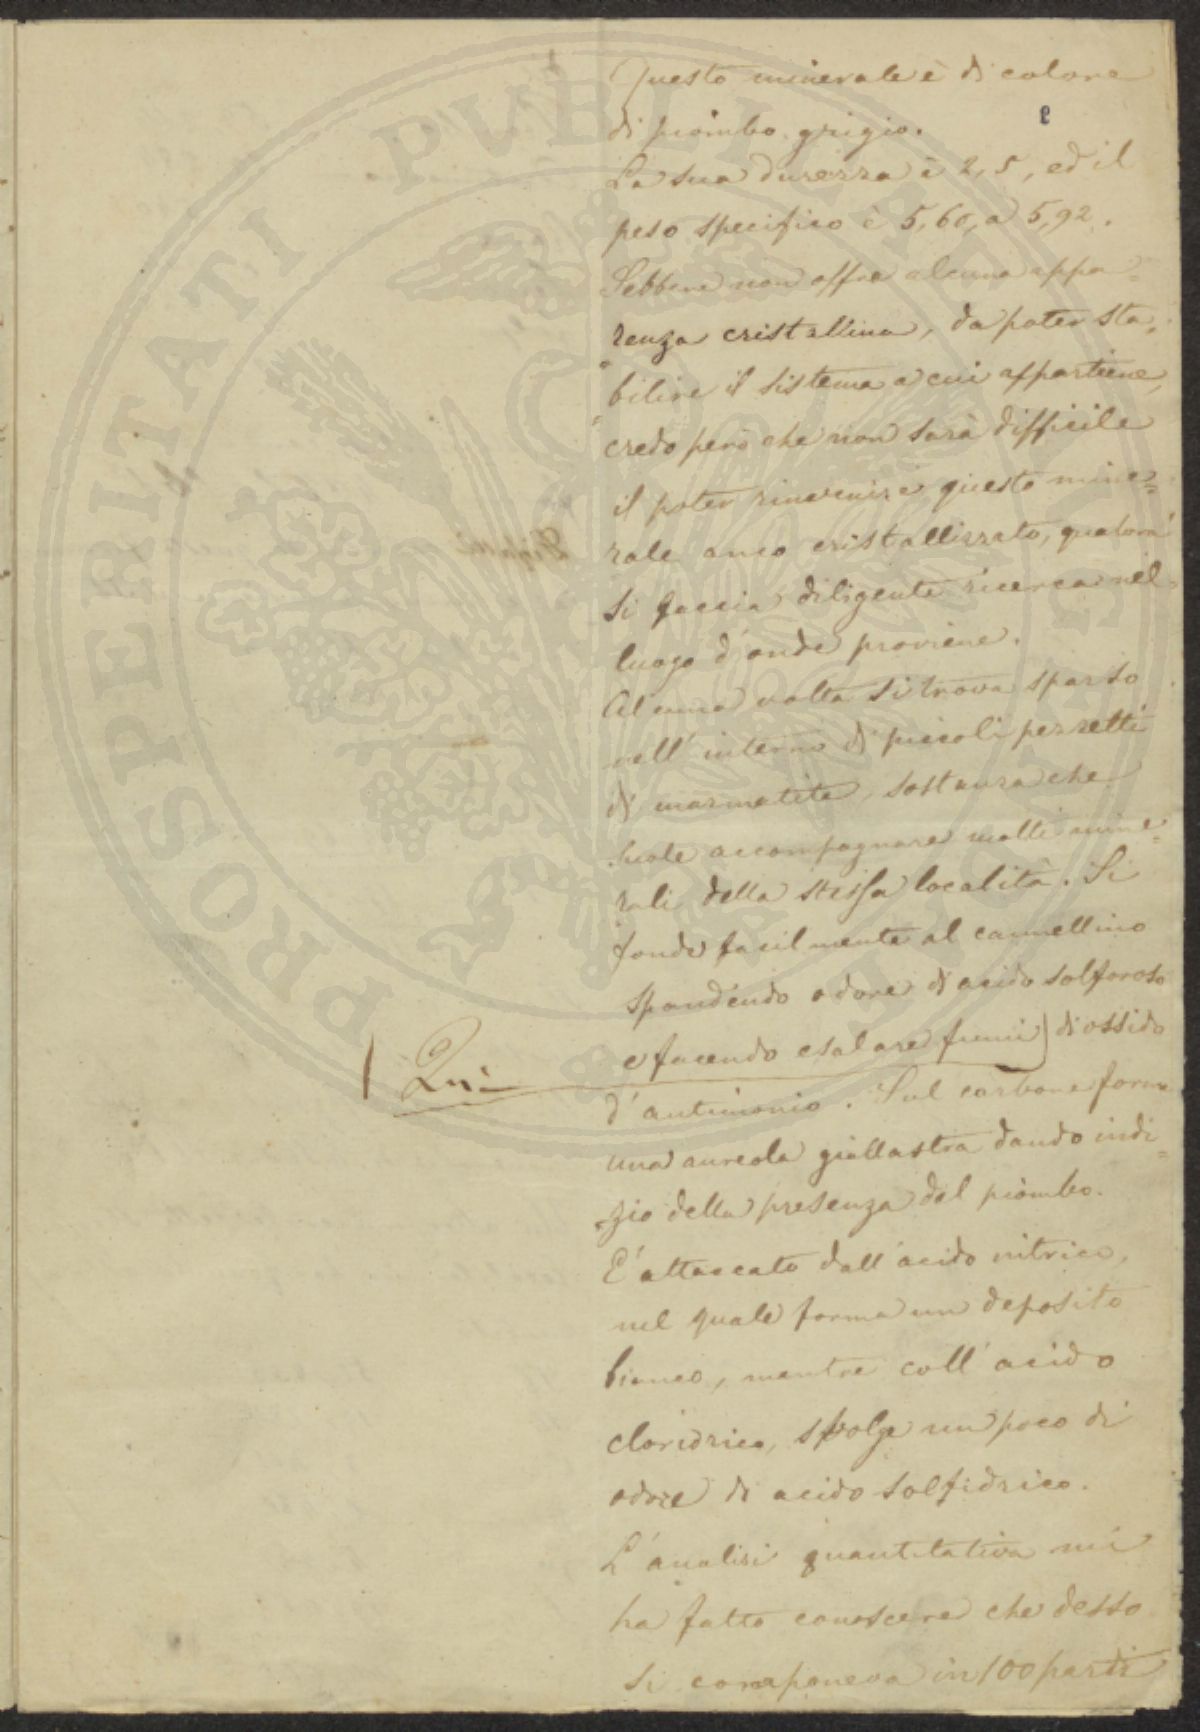 Questo minerale è di colore
di piombo grigio.
2
La sua durezza è 2,5, ed il
peso specifico è 5,60, a 5,92.
Sebbene non offre alcuna appa=
renza cristallina, da poter sta=
bilire il sistema a cui appartiene,
credo però che non sarà difficile
il poter rinvenire questo mine=
rale anco cristallizzato, qualora
si faccia diligente ricerca nel
luogo d'onde proviene.
Alcuna volta si trova sparso
nell'interno di piccoli pezzetti
di marmatite, sostanza che
suole accompagnare molti mine=
rali della stessa località. Si
fonde facilmente al cannellino
spandendo odore di acido solforoso
e facendo esalare fumi] di ossido
| Qui
d'antimonio. Sul carbone forma
una aureola giallastra dando indi=
zio della presenza del piombo.
E' attaccato dall'acido nitrico,
nel quale forma un deposito
bianco, mentre coll'acido
cloridrico, svolge un poco di
odore di acido solfidrico.
L'analisi quantitativa mi
ha fatto conoscere che desso
si componeva in 100 parti
PROSPERITATI PVBLICAE AVGENDAE